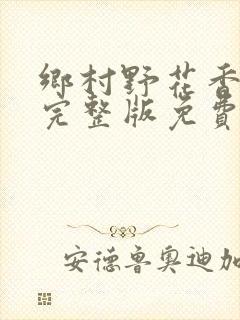 鄉村野花香
完整版免費
安德魯奧迪加